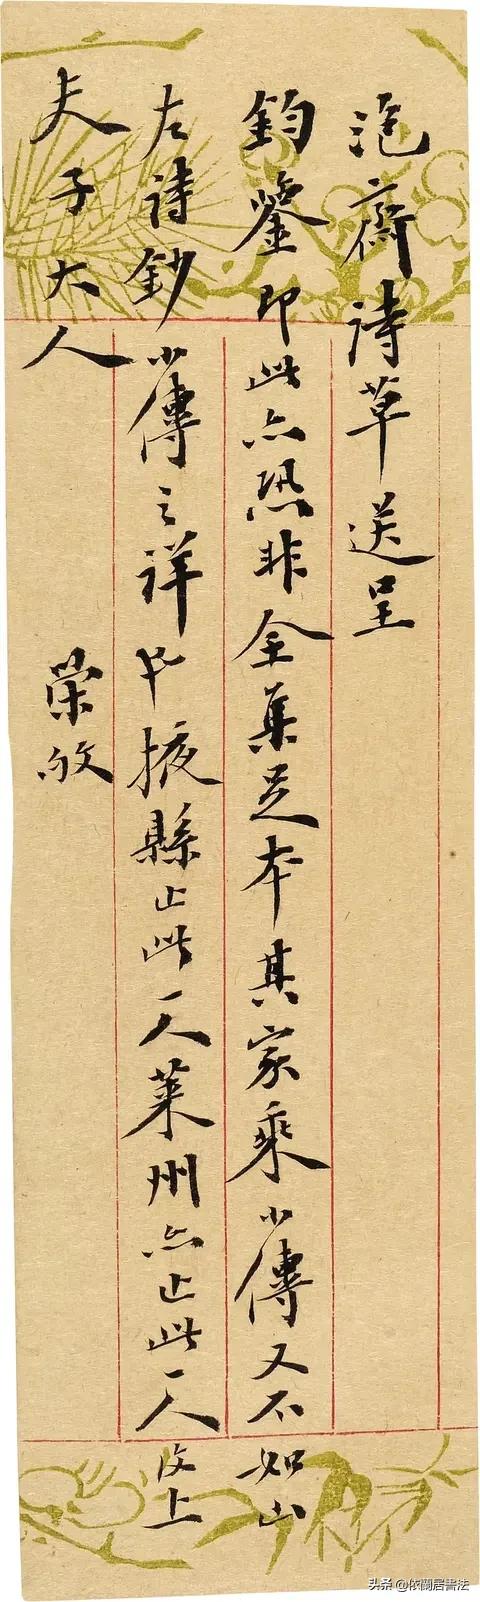 齋詩草送呈
鈞鑒即此亦恐非全集足本其家乘小傳又不如山
左詩鈔小傳之詳也掖縣止此一人萊州亦止此一人上
夫子大人
榮
头条 @依蘭居書法